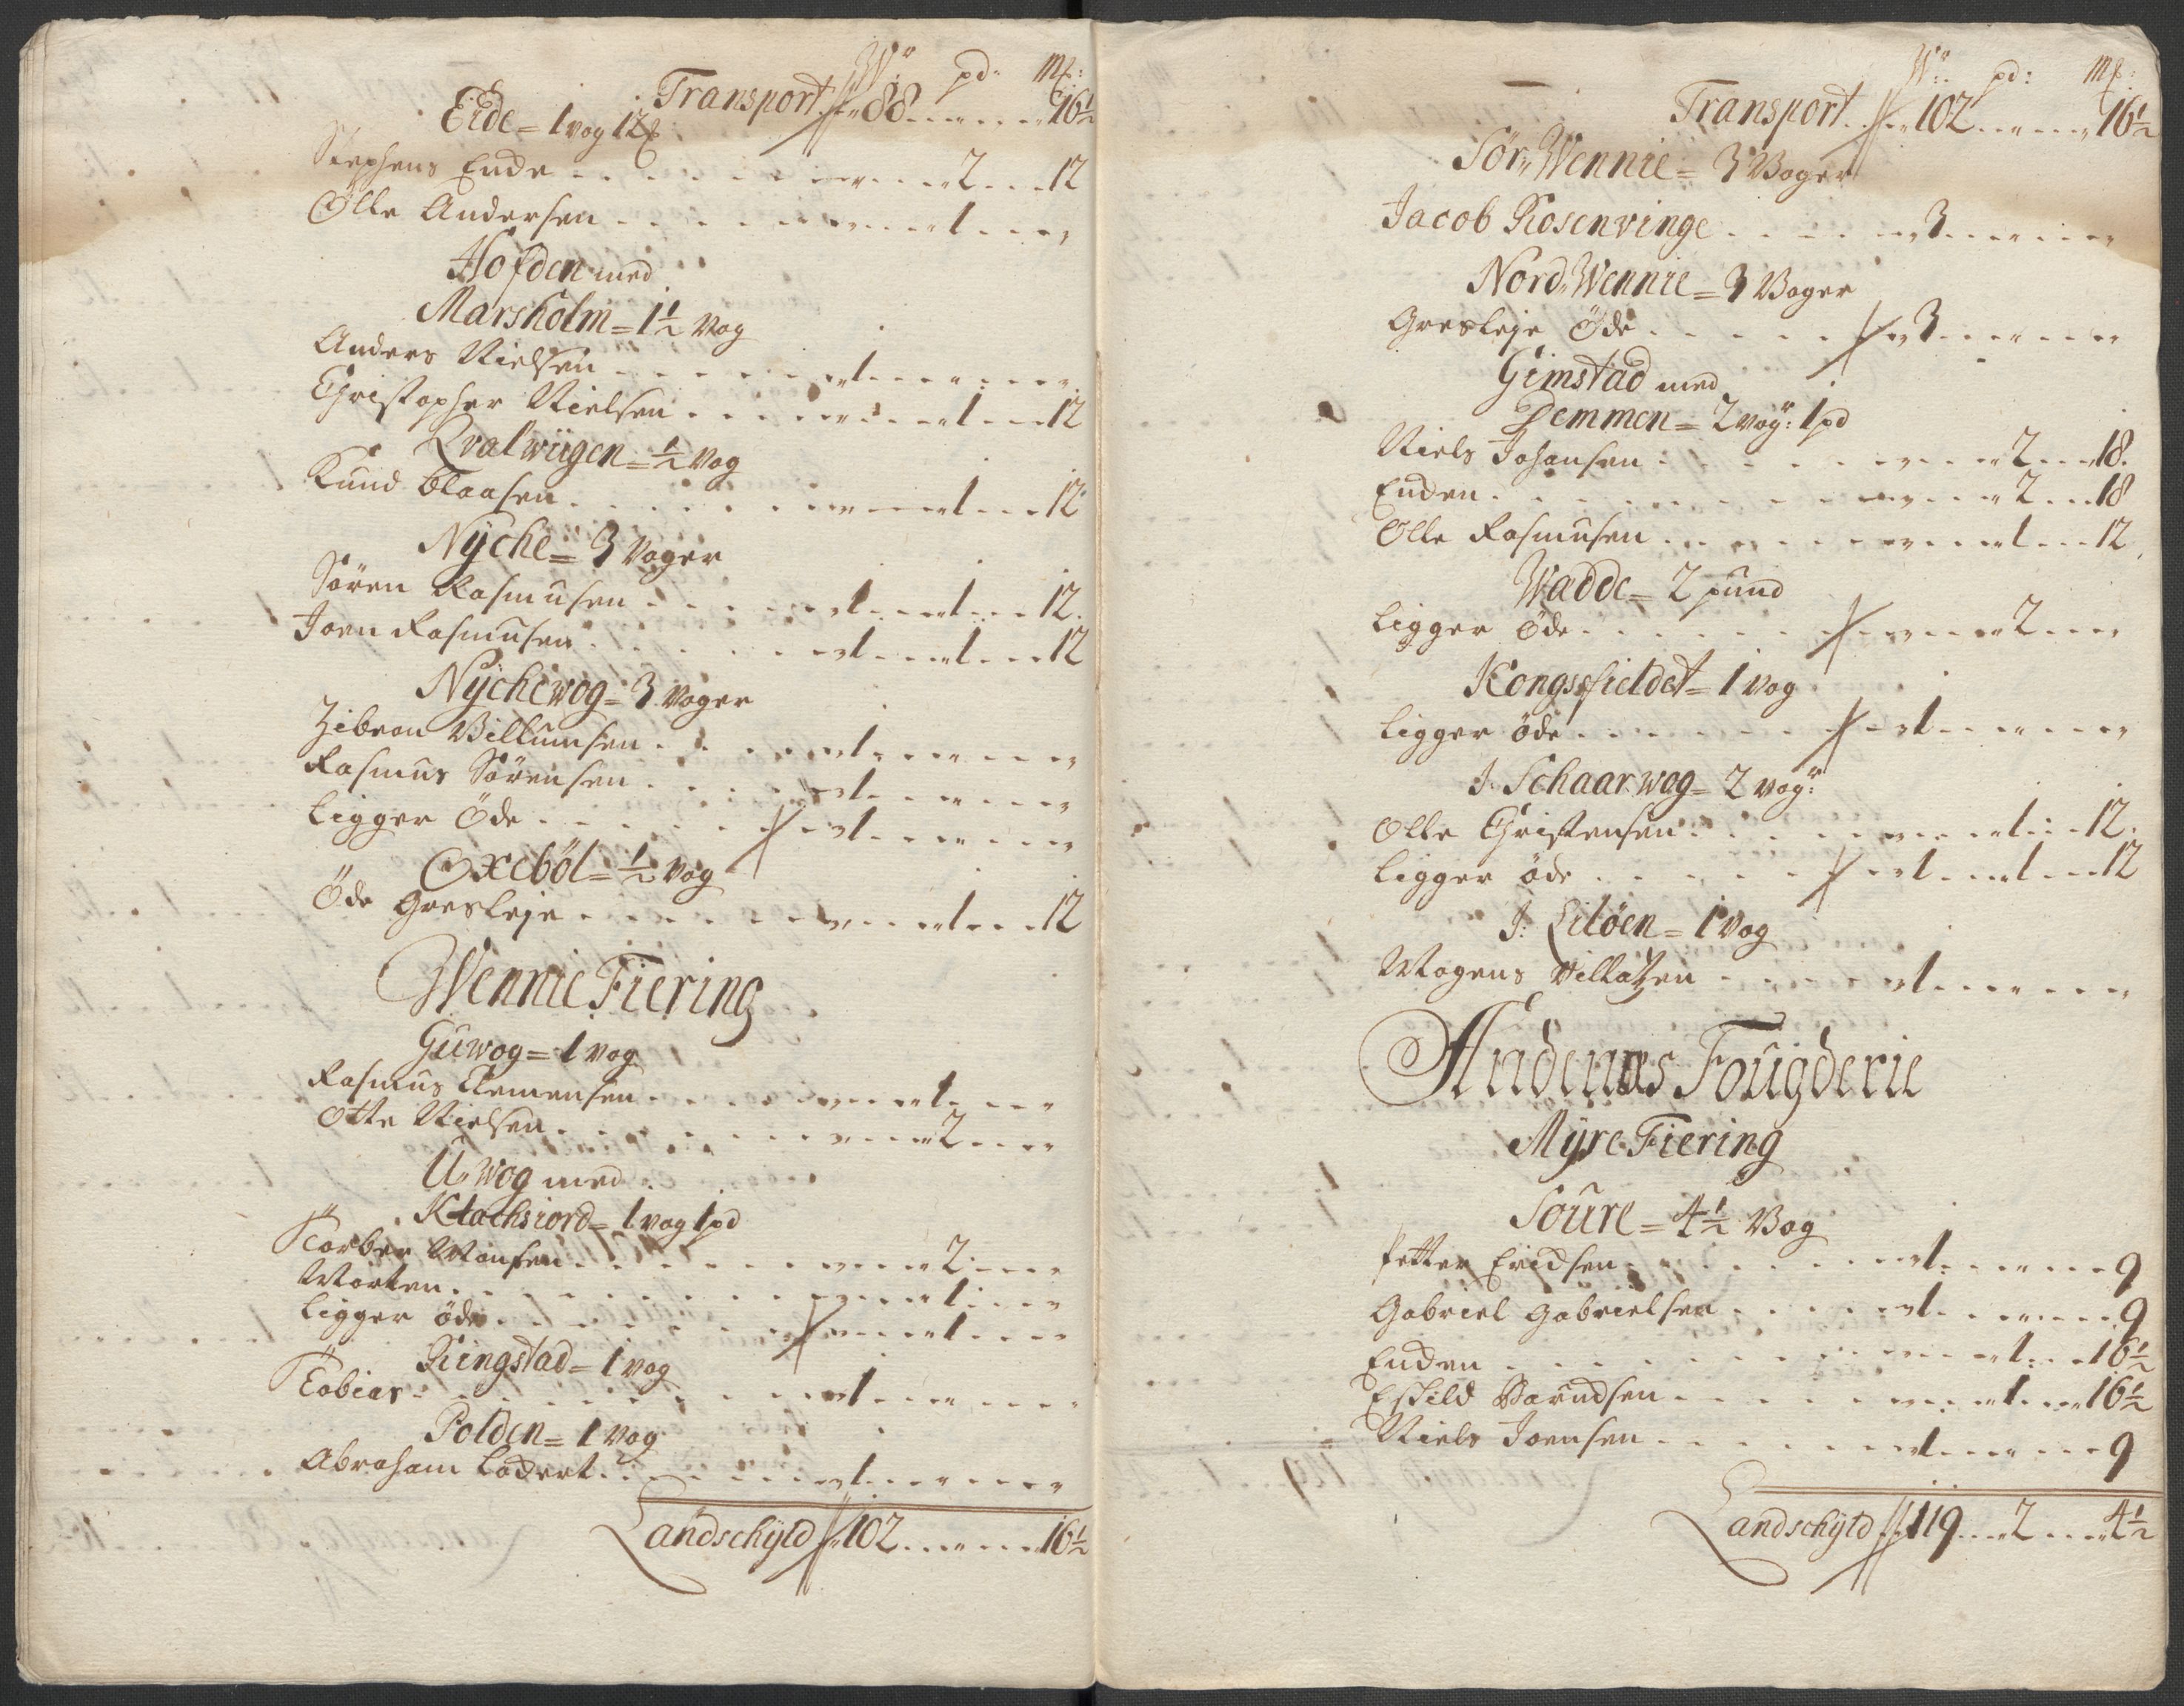 Wr pd: mk:
Transport 88 " 16½
Eide = 1 vog 12 mk:
Stephens Encke " 2 12
Olle Andersen " 1 "
Hofden med
Marsholm = 1½ Vog
Anders Nielsen 1 " "
Christopher Nielsen " 1 12
Qvalwiigen = ½ Vog
Knud Claasen " 1 12
Nÿche = 3 Voger
Sören Rasmusen 1 1 12
Joen Rasmusen 1 1 12
Nÿchewog = 3 Voger
Zibran Villumsen 1 " "
Rasmus Sörensen 1 " "
Ligger Öde 1 " "
Oxeböl = ½ Vog
Öde Gresleje " 1 12
Wennie Fiering
Guwog = 1 Vog
Rasmus Clemensen " 1 "
Otte Nielsen " 2 "
U. Wog med
Klachsiord = 1 vog 1 pd
Torber Monsen " 2 "
Morten " 1 "
Ligger öde " 1 "
Ringstad = 1 vog
Tobias 1 " "
Polden = 1 Vog
Abraham Lodert 1 " "
Landschÿld 102 " 16½
Wr: pd: mk:
Transport 102 " 16½
Sör Wennie = 3 Voger
Jacob Rosenvinge 3 " "
Nord Wennie = 3 Voger
Gresleje Öde 3 " "
Gimstad med
Demmen = 2 vogr: 1 pd
Niels Johansen " 2 18
Encken " 2 18
Olle Rasmusen " 1 12
Wadde = 2 pund
Ligger öde " 2 "
Kongssfieldet = 1 vog
Ligger öde 1 " "
I. Schaarwog = 2 vogr:
Olle Christensen " 1 12
Ligger öde 1 1 12
I: Liløen = 1 Vog
Mogens Villatzen 1 " "
Andenæs Fougderie
Mÿre Fiering
Soure = 4½ Vog
Petter Ericksen 1 " 9
Gabriel Gabrielsen 1 " 9
Encken " 1 16½
Eskild Barundsen " 1 16½
Niels Joensen 1 " 9
Landschÿld 119 2 4½